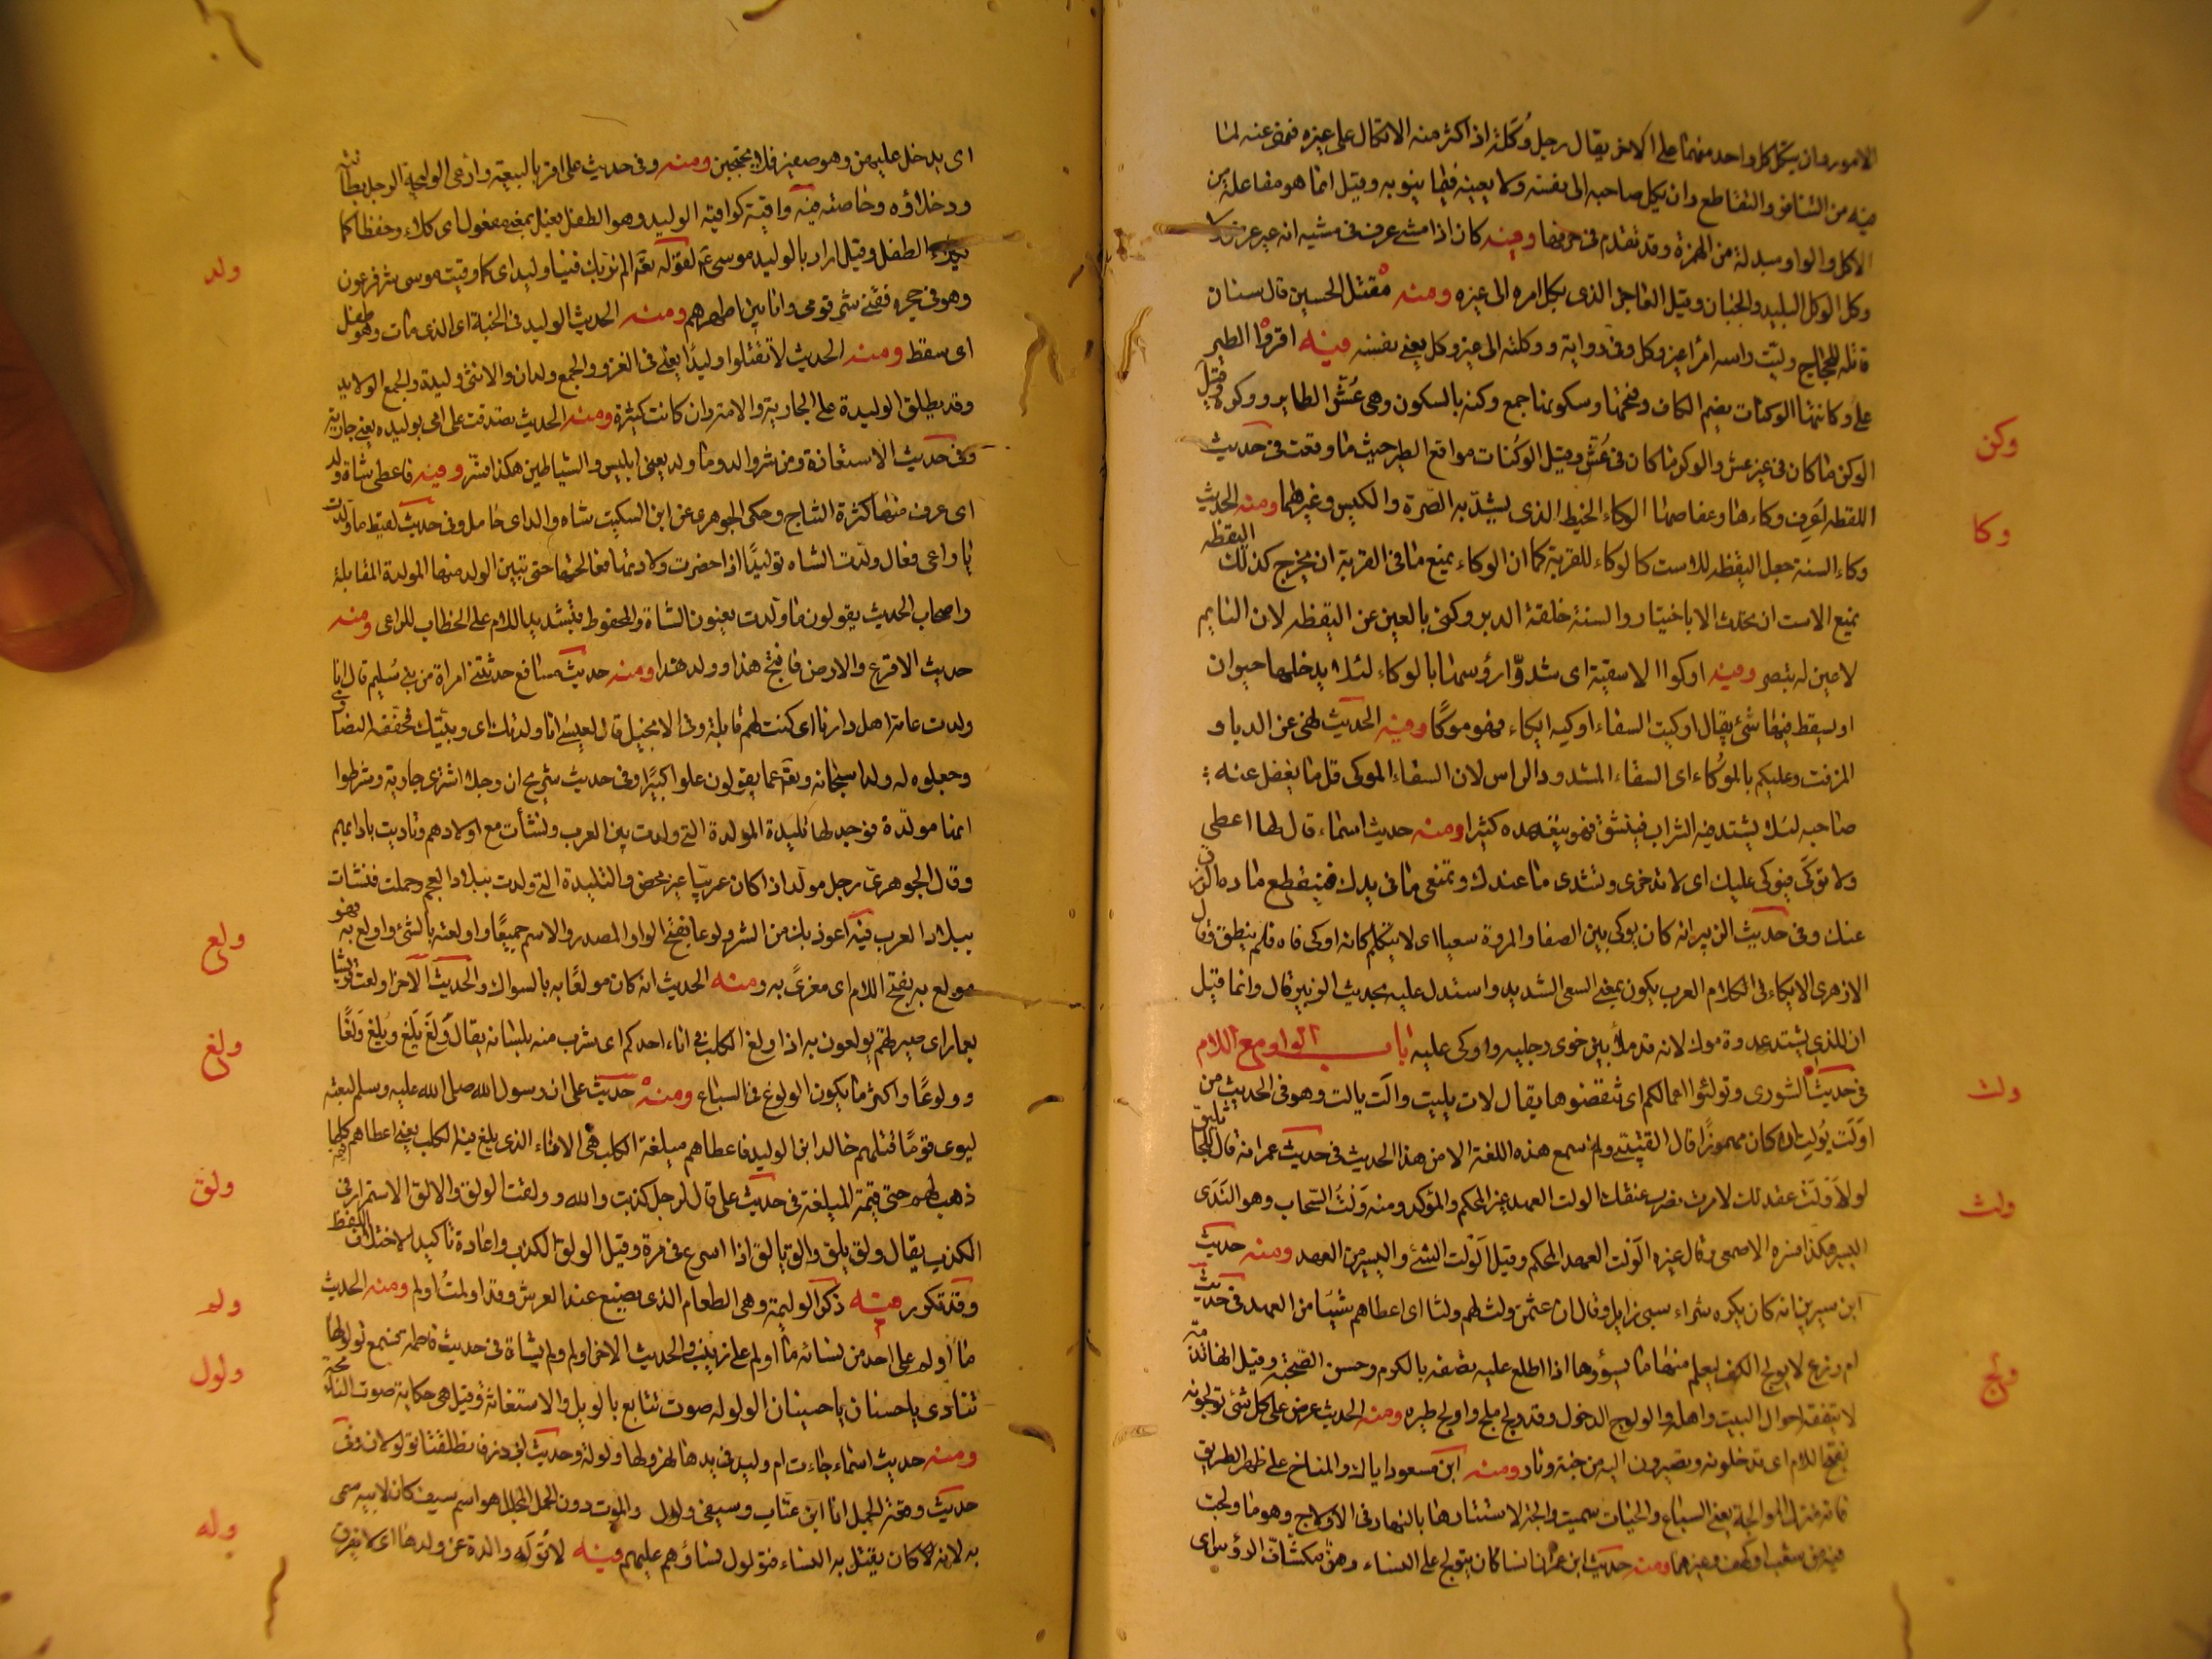 الامور وان يتكل كل واحد منهما على الاخر يقال رجل وُكَلَة اذا كثر منه الاتكال على غيره فنهى عنه لما
فيه من التنافر والتقاطع وان يكل صاحبه الى نفسه ولا يعينه فيما ينوبه وقيل انما هو مفاعلة من
الاكل والواو مبدلة من الهمزة وقد تقدم فى حرفها وفيه كان اذا مشى عرف فى مشيه انه غير غرض ولا
وكل الوكل البليد والجبان وقيل العاجز الذى يكل امره الى غيره ومنه مقتل الحسين قال سنان
قاتله للحجاج وليت راسه امرأ غير وكل وفى رواية ووكلته الى غير وكل يعنى نفسه فيه اقروا الطير
على وكناتها الوكنات بضم الكاف وفتحها وسكونها جمع وكنة بالسكون وهى عُشّ الطاير ووكره وقيل
وكن
الوكن ما كان فى غير عش والوكر ما كان فى عُشّ وقيل الوكنات مواقع الطير حيث ما وقعت فى حديث
وكا
اللقطه اعرف وكاءها وعفاصها الوكاء الخيط الذى يشدّ به الصّرة والكيس وغيرهما ومنه الحديث اليقظه
وكاء السته جعل اليقظه للاست كالوكاء للقربة كما ان الوكاء يمنع ما فى القربة ان يخرج كذلك
يمنع الاست ان تحدث الا باختيار والسته حلقة الدبر وكنى بالعين عن اليقظه لان النايم
لا عين له تبصر وفيه اوكوا الاسقية اى شدوّا رؤسها بالوكاء لئلا يدخلها حيوان
او يسقط فيها شئ يقال اوكيت السقاء اوكيه ايكاء فهو موكًا وفيه الحديث نهى عن الدبا و
المزفت وعليكم بالموُكاء اى السقاء المشدود الراس لان السقاء الموكى قل ما يغفل عنه
صاحبه لئلا يشتد فيه الشراب فينشق فهو يتعهده كثيرا ومنه حديث اسماء قال لها اعطى
ولا توكى فيوكى عليك اى لا تدخرى وتشدى ما عندك وتمنعى ما فى يدك فينقطع مادة الرزق
عنك وفى حديث الزبير انه كان يوكى بين الصفا والمروة سعيا اى لا يتكلم كانه اوكى فاه فلم ينطق وقال
الازهرى الايكاء فى كلام العرب يكون بمعنى السعى الشديد واستدل عليه بحديث الزبير قال وانما قيل
ان للذى يشتد عدوه موك لانه قد ملأ بين خوى رجليه واوكى عليه باب الواو مع اللام
ولت
فى حديث الشورى وتولتوا اعمالكم اى تنقصوها يقال لات يليت وآلت يالت وهو فى الحديث من
اوَلَت يُولِت ان كان مهموزًا قال القتيبى ولم نسمع هذه اللغة الا من هذا الحديث فى حديث عمر انه قال للجاثليق
ولث
لولا وَلَث عقد لك لامرت بضرب عنقك الولث العهد غير المحكم والمؤكد ومنه وَلْثُ السّحاب وهو النَدَى
اليسير هكذا فسره الاصمعى وقال غيره الوَلث العهد المحكم وقيل الوَلث الشئ واليسير من العهد ومنه حديث
ابن سيرين انه كان يكره شراء سبى زابل وقال ان عثمن ولث لهم ولثا اى اعطاهم شيئا من العهد فى حديث
ولج
ام زرع لا يولج الكف ليعلم منها ما يسؤوها اذا اطلع عليه تصفه بالكرم وحسن الصّحبة وقيل انها تذمه
لا يتفقد احوال البيت واهله والولوج الدخول وقد ولج يلج واولج غيره ومنه الحديث عرض على كل شئ تولجونه
بفتح اللام اى تدخلونه وتصيرون اليه من جنة ونار ومنه ابن مسعود اياك والمناخ على ظهر الطريق
فانه منزل الوالجة يعنى السباع والحيات سميت والجة لاستتارها بالنهار فى الاولاج وهو ما ولجت
فيه من شعب او كهف وغيرهما ومنه حديث ابن عمر ان انسا كان يتولج على النساء وهنّ مكشّفات الرؤس اى
اى يدخل عليهن وهو صغير فلا يحتجبن ومنه وفى حديث على اقر بالبيعة وادعى الوليجة الرجل بطانته
ودخلاؤه وخاصته فيه واقية كواقية الوليد وهو الطفل فعيل بمعنى مفعول اى كلاءً وحفظا كما
ولد
يكلاء الطفل وقيل اراد بالوليد موسى عم لقوله تعم الم نربك فينا وليدا اى كما وقيت موسى شر فرعون
وهو فى حجره فقنى شر قومى وانا بين اظهرهم ومنه الحديث الوليد فى الجنة اى الذى مات وهو طفل
اى سقط ومنه الحديث لا تقتلوا وليدًا يعنى فى الغزو والجمع ولدان والانثى وليدة والجمع الولايد
وقد يطلق الوليدة على الجارية والامة وان كانت كبيرة ومنه الحديث تصدقت على امى بوليده يعنى جارية
وفى حديث الاستعاذة ومن شر والد وما ولد يعنى ابليس والشياطين هكذا فسّر وفيه فاعطى شاة والد
اى عرف منها كثرة النتاج وحكى الجوهرى عن ابن السكيت شاه والد اى حامل وفى حديث لقيط ما ولّدت
يا راعى فقال ولّدت الشاه توليدًا اذا حضرت ولادتها فعالجتها حتى تبين الولد منها المولدة القابلة
واصحاب الحديث يقولون ما ولدت يعنون الشاة والمحفوظ بتشديد اللام على الخطاب للراعى ومنه
حديث الاقرع والابرص فانتج هذا وولد هذا ومنه حديث مسافع حدثتنى امراة من بنى سُليم قال انا
ولدت عامة اهل دارنا اى كنت لهم قابلة وفى الانجيل قال لعيسى انا ولدتك اى ربيتك فخففه النصارى
وجعلوه له ولدا سبحانه وتعم عما يقولون علوا كبيرًا وفى حديث شريح ان رجلا اشترى جارية وشرطوا
انها مولّدة فوجدها تليدة المولدة التى ولدت بين العرب ونشأت مع اولادهم وتادبت بادابهم
وقال الجوهرىّ رجل مولّد اذا كان عربيّا غير محض والتليدة التى ولدت ببلاد العجم وحملت فنشات
ولع
ببلاد العرب فيه اعوذ بك من الشر ولوعا بفتح الواو المصدر والاسم جميعًا واولعته بالشئ واولع به فهو
مولع به بفتح اللام اى مغرىً به ومنه الحديث انه كان مولعًا به بالسواك والحديث الاخر اولعت قريشا
ولغ
بعمار اى صيرتهم يولعون به اذا ولغ الكلب فى اناء احدكم اى شرب منه بلسانه يقال وَلَغَ يَلَغ ويُلِغ وَلَغًا
وولوغًا واكثر ما يكون الولوغ فى السباع ومنه حديث على ان رسول الله صلى الله عليه وسلم بعثه
ليودى قومًا قتلهم خالد ابن الوليد فاعطاهم ميلغة الكلب هى الاناء الذى يلغ فيه الكلب يعنى اعطاهم كلما
ولق
ذهب لهم حتى قيمة الميلغة فى حديث على قال لرجل كذبت والله وولقت الولق والالق الاستمرار فى
الكذب يقال ولق يلق والق يالق اذا اسرع فى مره وقيل الولق الكذب واعاده تاكيدا لاختلاف اللفظ
ولم
وقد تكرر فيه ذكر الوليمة وهى الطعام الذى يصنع عند العرس وقد اولمتُ اولم ومنه الحديث
ما أولم على احد من نسائه ما اولم على زينب والحديث الاخر اولم ولو بشاة فى حديث فاطمه تسمع تولولها
ولول
تنادى يا حسنان يا حسينان الولوله صوت تتابع بالويل والاستغاثة وقيل هى حكاية صوت النائحة
ومنه حديث اسماء جاءت ام وليد فى يدها فهر ولها ولولة وحديث ابى ذر فانطلقتا تولولان وفى
حديث وقعة الجمل انا ابن عتاب وسيفى ولول والموت دون الجمل المجلل هو اسم سيف كان لابيه سمى
وله
به لانه كان يقتل به النساء فتولول نساؤهم عليهم فيه لا تُولَّه والدة عن ولدها اى لا يفرق